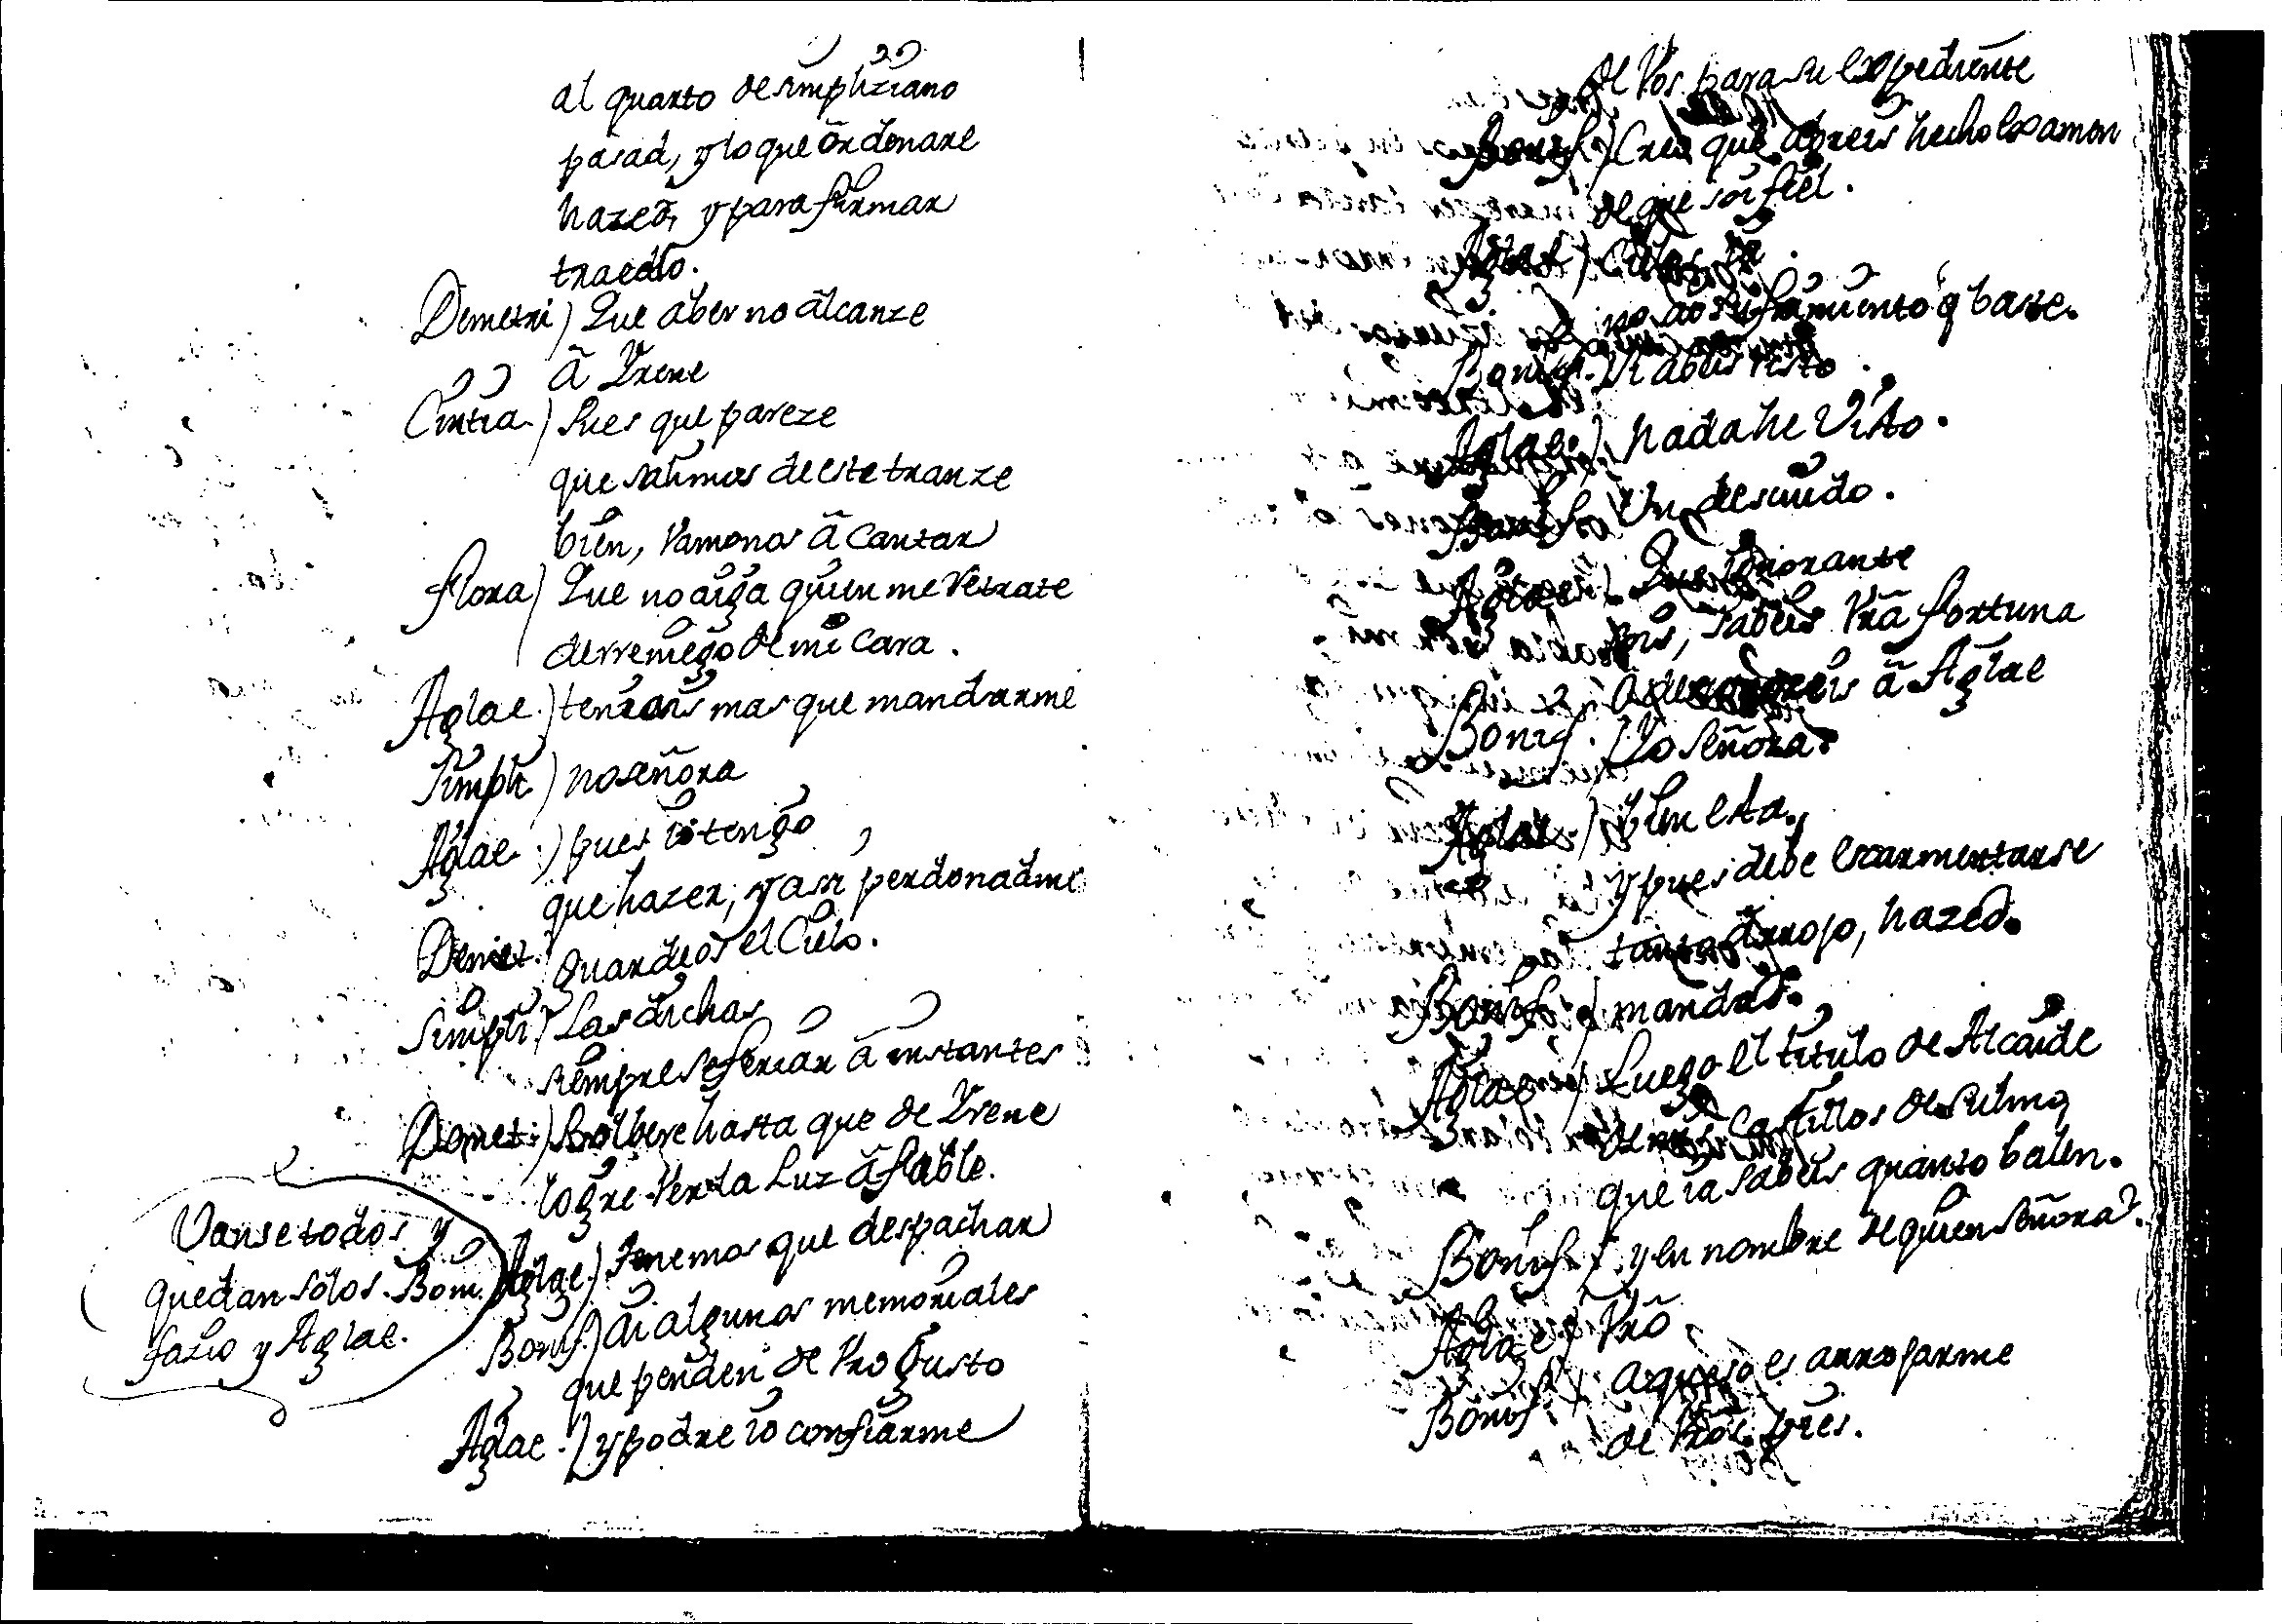 al quarto de simpliziano
pasad, y lo que ordenare
hazed, y para firmar
traedlo.
Demetri) Que aber no alcanze
â Yrene
Cintia.) Pues que pareze
que salimos de este tranze
bien, Vamonos â Cantar
flora) Que no aiga quien me Retrate
derreniego de mi Cara.
Aglae.) tengais mas que mandarme
Simpli.) no señora
Aglae.) pues io tengo
que hazer, y asi perdonadme
Demet. Guardeos el Cielo.
Simpli.) Las dichas
siempre se ferian â instantes
Demet.) Bolbere hasta que de Yrene
logre Ver la Luz afable.
Vanse todos y
quedan solos. Boni
fazio y Aglae.
Aglae.) Tenemos que despachar
Bonif.) ai algunos memoriales
que penden de Vro Gusto
Aglae.) y podre io confiarme
de Vos para su expediente
Bonif.) Creo que abreis hecho examen
de que soi fiel.
Aglae)
Bonif. Ni abeis visto.
Aglae) Nada he Visto.
Bonif. Un descuido.
Aglae. Que ignorante
sois, sabeis Vra fortuna
â Aglae
Bonif. Yo Señora.
Aglae.) bien esta.
y pues debe escarmentarse
tanto arrojo, hazed.
Bonif.) mandad.
Aglae) Luego el titulo de Alcaide
de mis Castillos de
que ia sabeis quanto balen.
Bonif) y en nombre de quien Señora?
Aglae) Vro
Bonif. aqueso es arrojarme
de Vros pies.